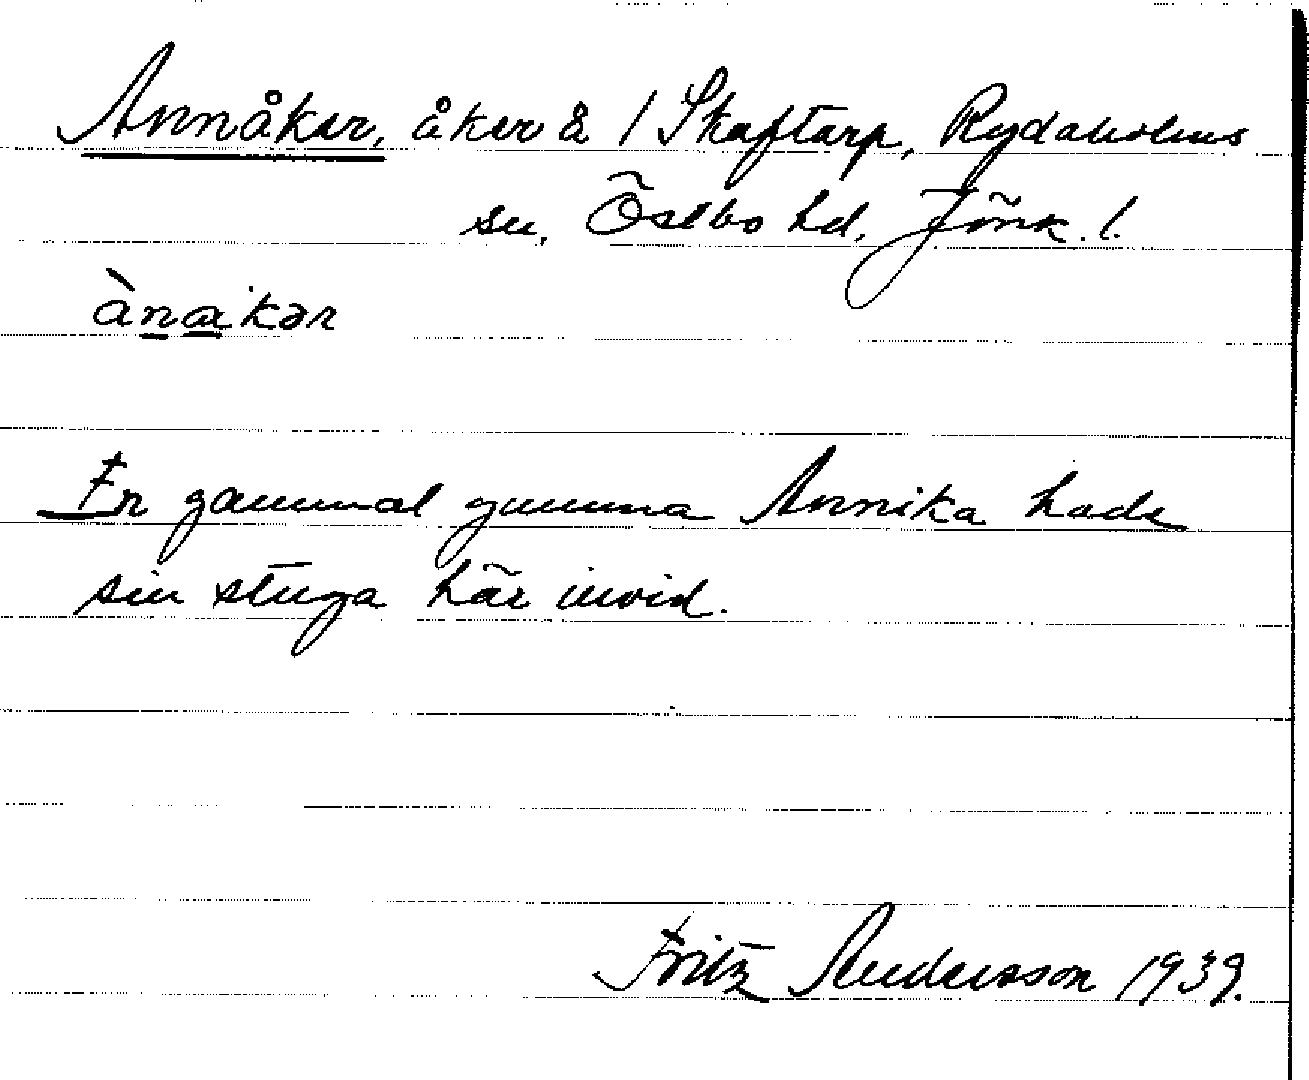 Annåker, åker å 1 Skaftarp, Rydaholms
sn, Östbo hd, Jönk. l.
ànakər
En gammal gumma Annika hade
sin stuga här invid.
Fritz Andersson 1939.